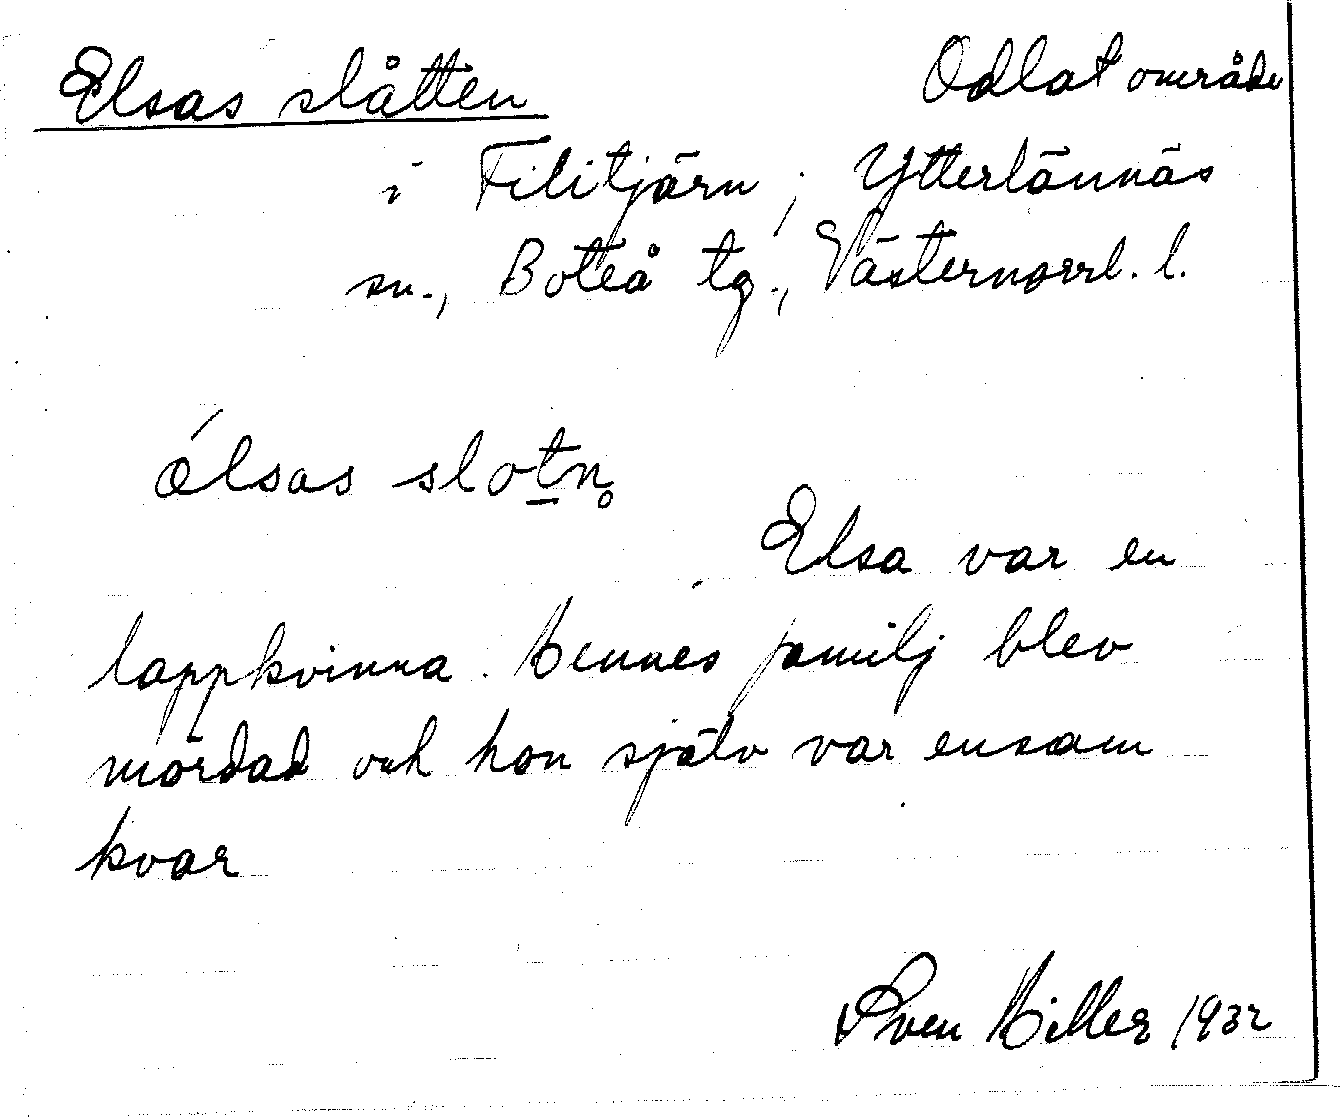 Elsas slåtten Odlat område
i Filitjärn, Ytterlännäs
sn., Boteå tg., Västernorrl. l.
álsas slotn̥
Elsa var en
lappkvinna. Hennes familj blev
mördad och hon själv var ensam
kvar
Sven Hiller 1932